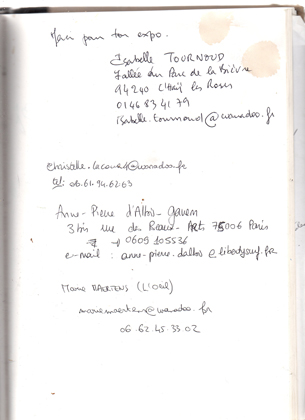 Merci pour ton expo.
Isabelle TOURNOUD
1 allée du Parc de la Bièvre
94240 L'Haÿ les Roses
01 46 83 41 79
isabelle.tournoud@wanadoo.fr
@wanadoo.fr
tel: 06.61.94.62.63
Anne-Pierre d'Albis-Ganem
3 bis rue des Beaux-Arts 75006 Paris
0609 105536
e-mail : anne-pierre.dalbis@libertysurf.fr
Marie MAERTENS (L'Oeil)
mariemaertens@wanadoo.fr
06 62 45 33 02